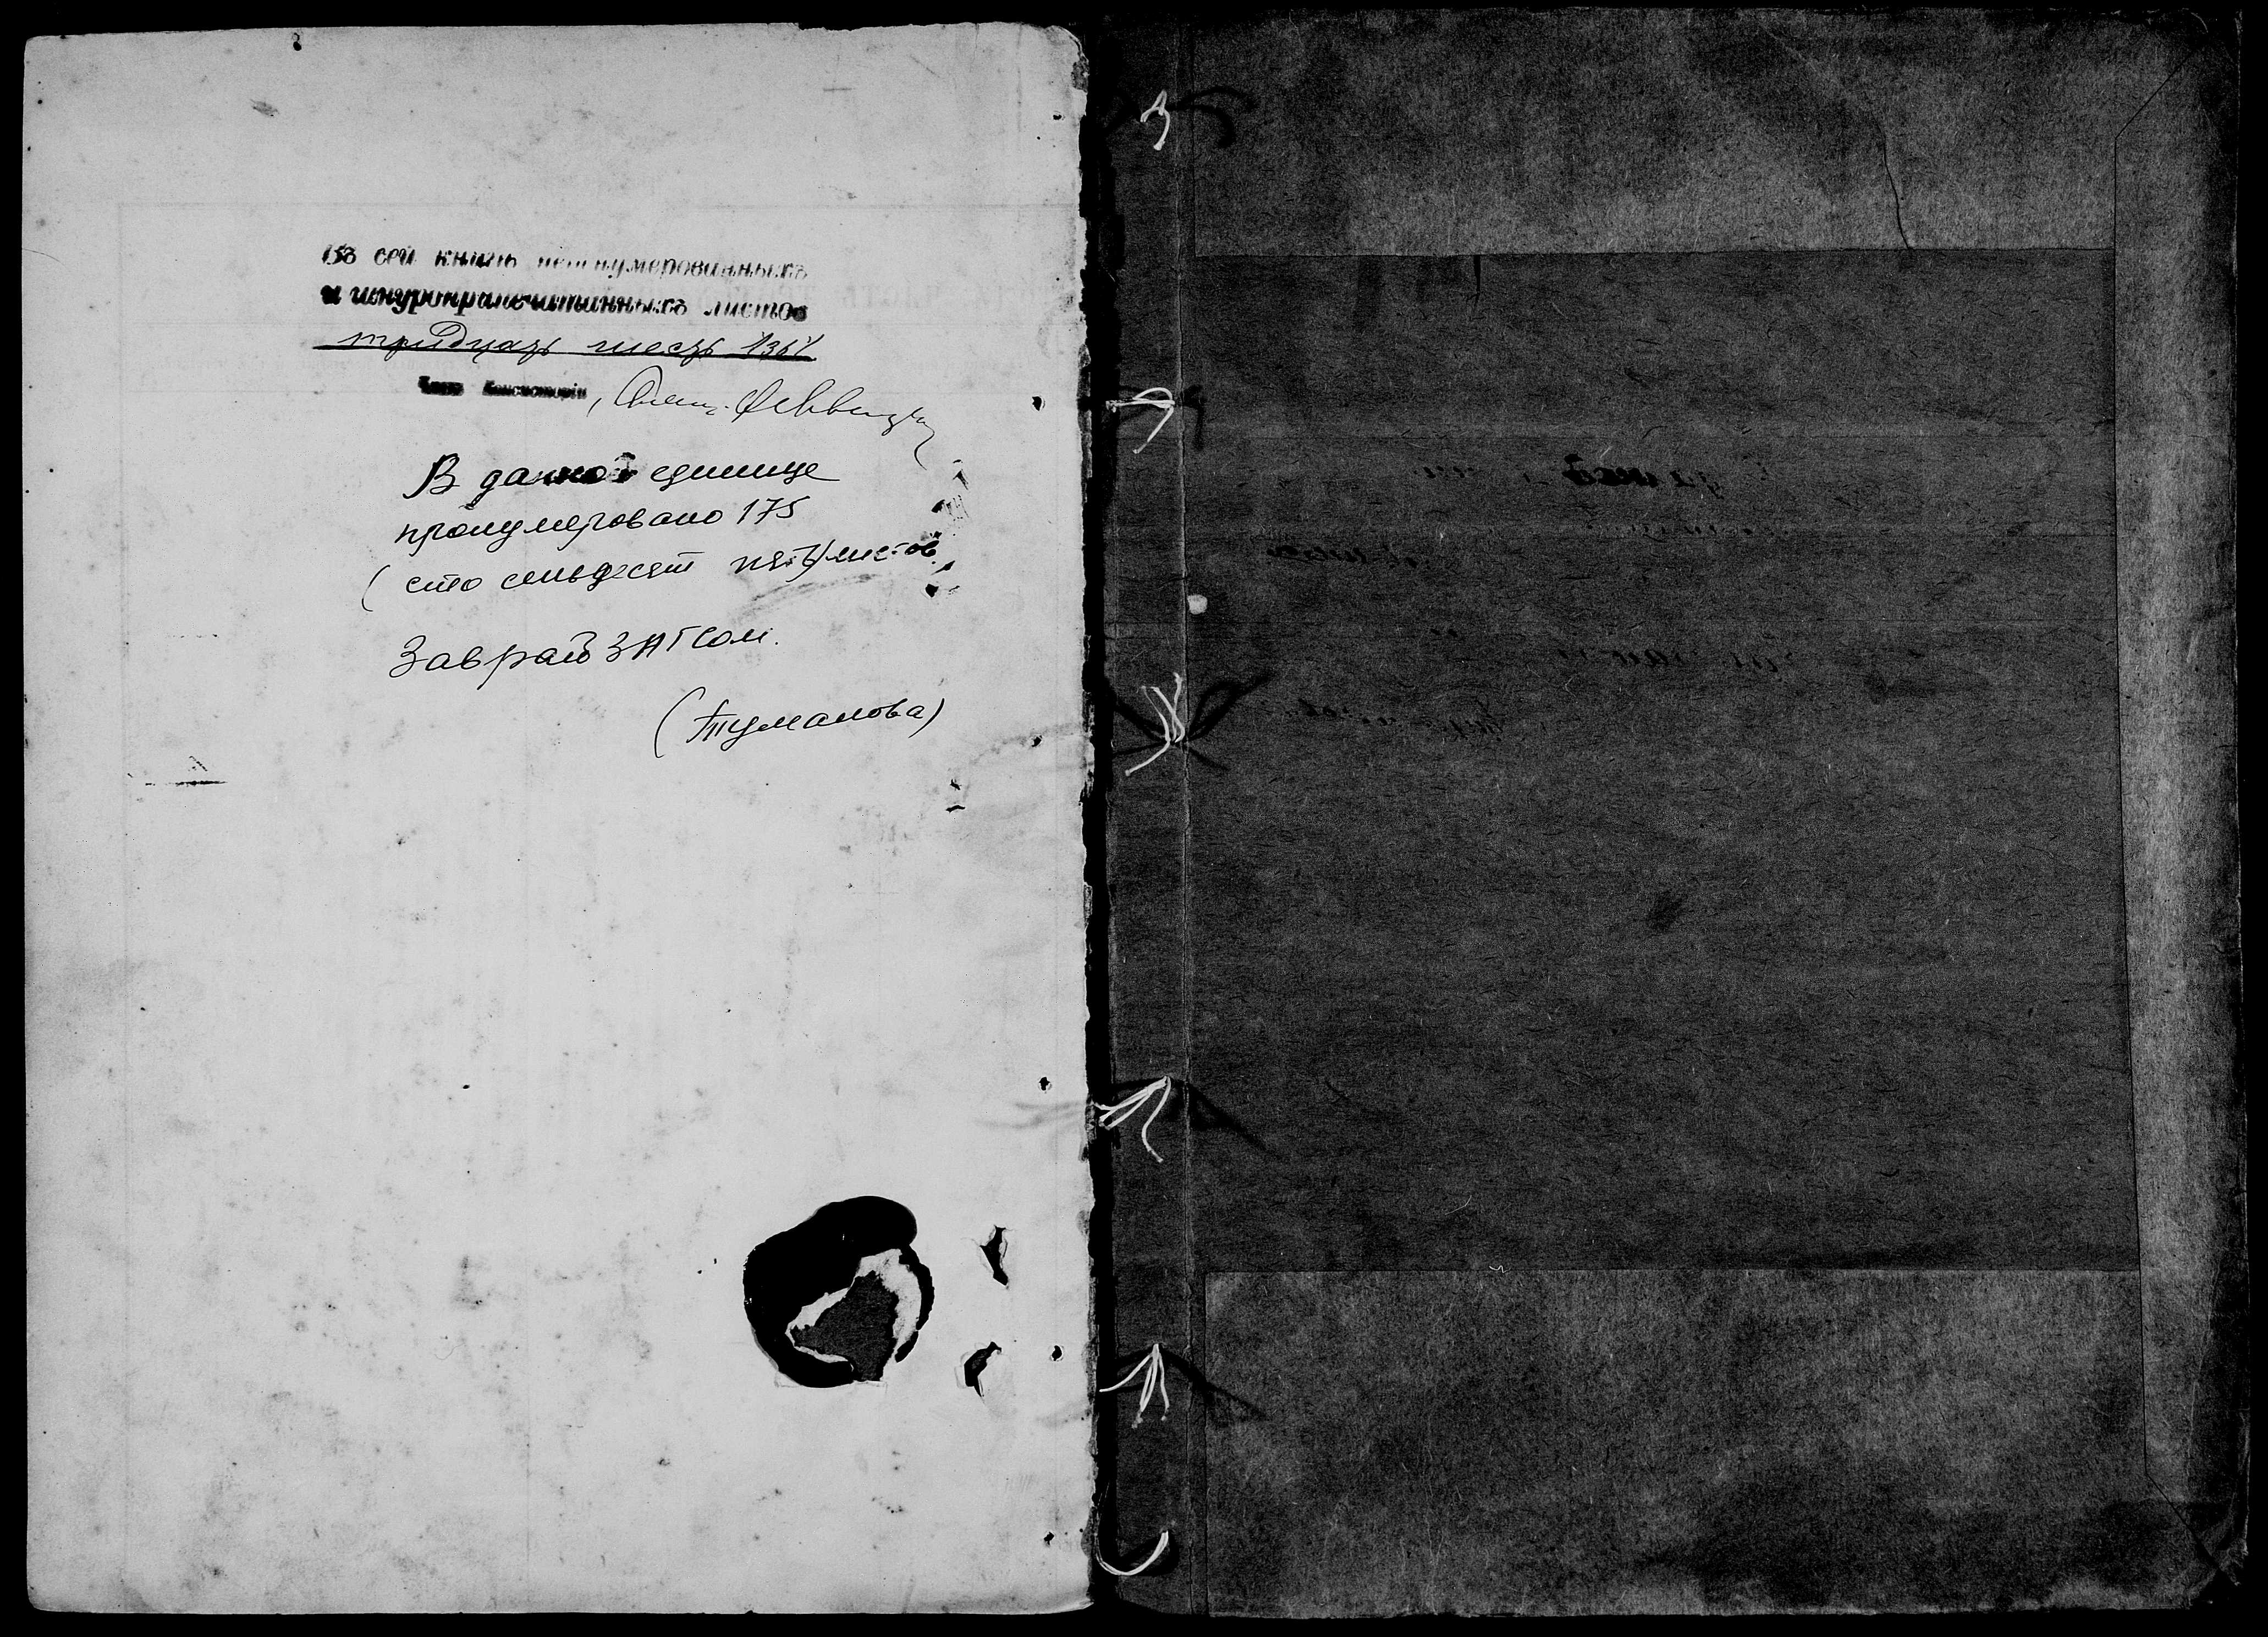 Въ сей книгѣ перенумерованныхъ
и шнурокрапечатанныхъ листов
тридцать шесть /36/
Члена Консисторіи, Свящ.
В данной единице
пронумеровано 175
(сто семьдесят пять) листов.
Заврай ЗАГСом.
(Туманова)